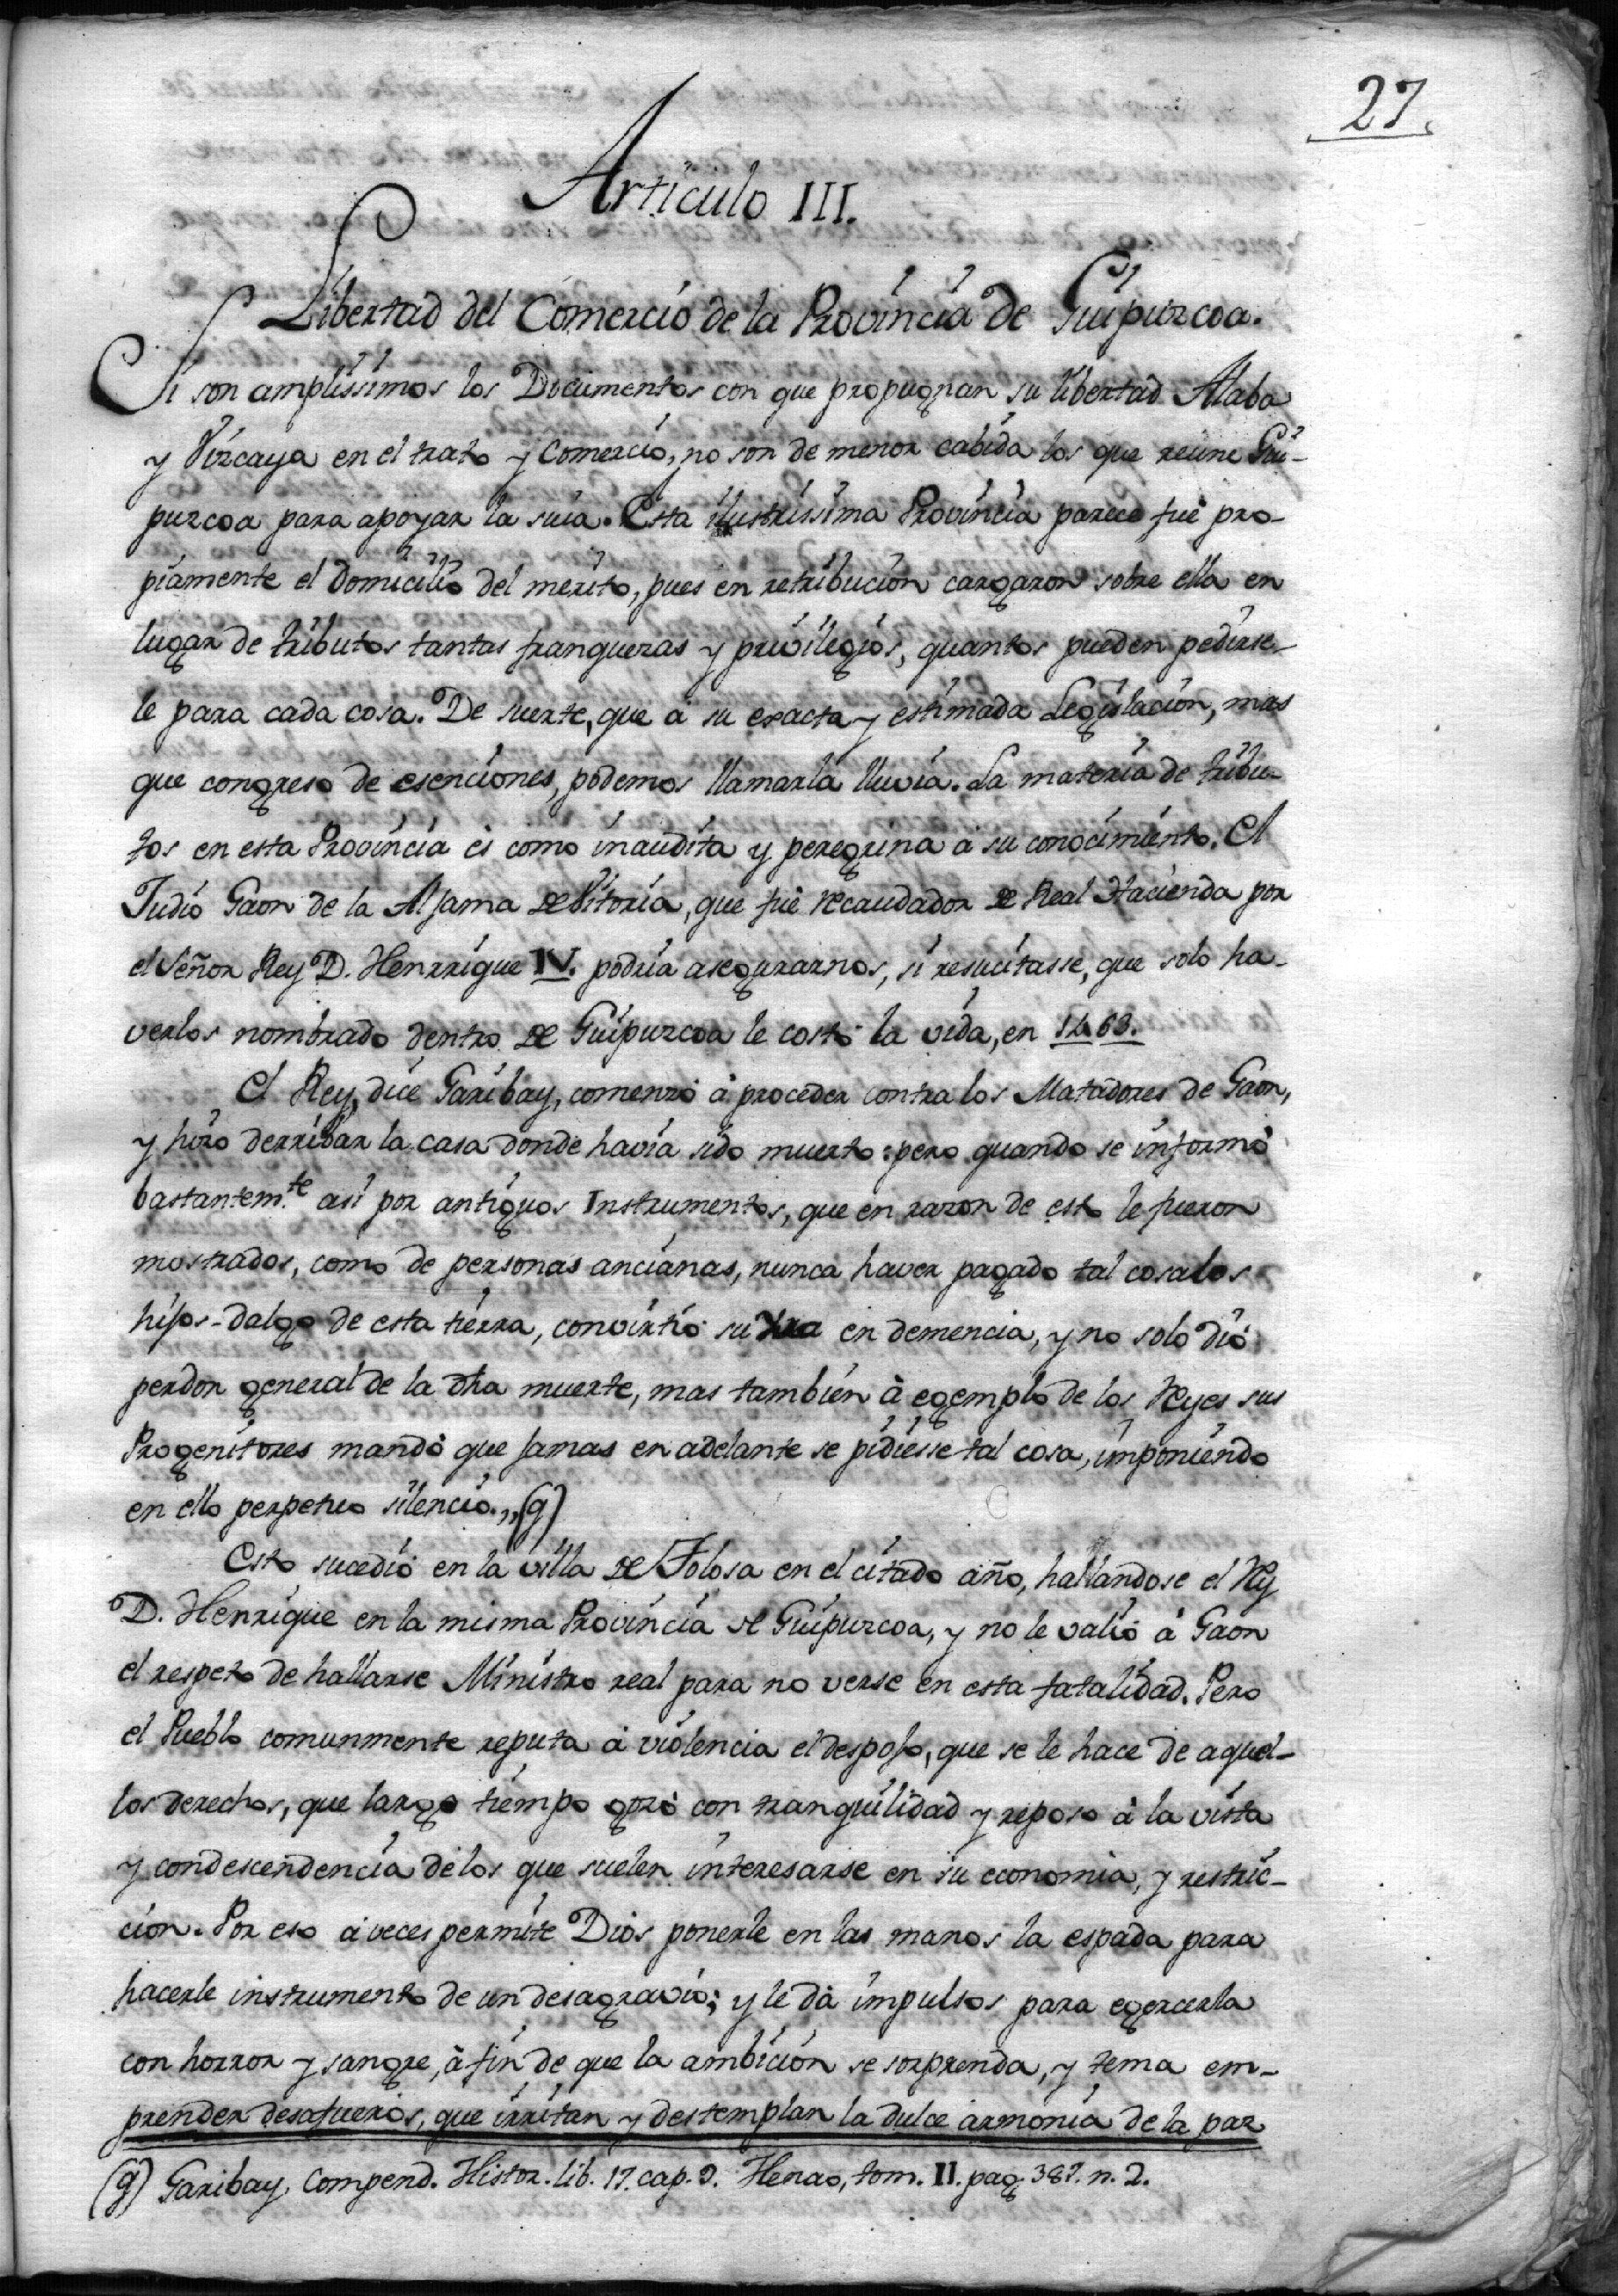 27.
Articulo III.
Libertad del Comercio de la Provincia de Guipuzcoa.
Si son amplissimos los Documentos con que propugnan su libertad Alaba
y Vizcaya en el trato y Comercio, no son de menor cabida los que reune Gui-
puzcoa para apoyar la suia. Esta ilustrissima Provincia parece fué pro-
piamente el domicilio del merito, pues en retribucion cargaron sobre ella en
lugar de tributos tantas franquezas y privilegios, quantos pueden pedirse-
le para cada cosa. De suerte, que à su exacta y estimada Legislacion, mas
que congreso de esenciones, podemos llamarla lluvia. La materia de tribu-
tos en esta Provincia és como inaudita y peregrina à su conocimiento. El
Judio Gaon de la Aljama de Vitoria, que fué recaudador de Real Hacienda por
el Señor Rey D. Henrrique IV. podria asegurarnos, si resucitasse, que solo ha-
verlos nombrado dentro de Guipuzcoa le costó la vida, en 1463.
El Rey, dice Garibay, comenzó à proceder contra los Matadores de Gaon,
y hizo derribar la casa donde havia sido muerto: pero quando se informó
bastantem.te asi por antiguos Instrumentos, que en razon de esto le fueron
mostrados, como de personas ancianas, nunca haver pagado tal cosa los
hijos-dalgo de esta tierra, convirtió su Yra en demencia, y no solo dió
perdon general de la dha muerte, mas tambien à egemplo de los Reyes sus
Progenitores mandó que jamas en adelante se pidiesse tal cosa, imponiendo
en ello perpetuo silencio.,,(g)
Esto sucedió en la villa de Tolosa en el citado año, hallandose el Rey
D. Henrique en la misma Provincia de Guipuzcoa, y no le valió à Gaon
el respeto de hallarse Ministro real para no verse en esta fatalidad. Pero
el Pueblo comunmente reputa à violencia el despojo, que se le hace de aquel-
los derechos, que largo tiempo gozó con tranquilidad y reposo à la vista
y condescendencia de los que suelen interesarse en su economia, y restric-
cion. Por eso à veces permite Dios ponerle en las manos la espada para
hacerle instrumento de un desagravio; y le dà impulsos para egercerla
con horror y sangre, à fin de que la ambicion se sorprenda, y tema em-
prender desafueros, que irritan y destemplan la dulce armonia de la paz
(g) Garibay, Compend. Histor. lib. 17. cap. 9. Henao, tom. II. pag. 387. n. 2.